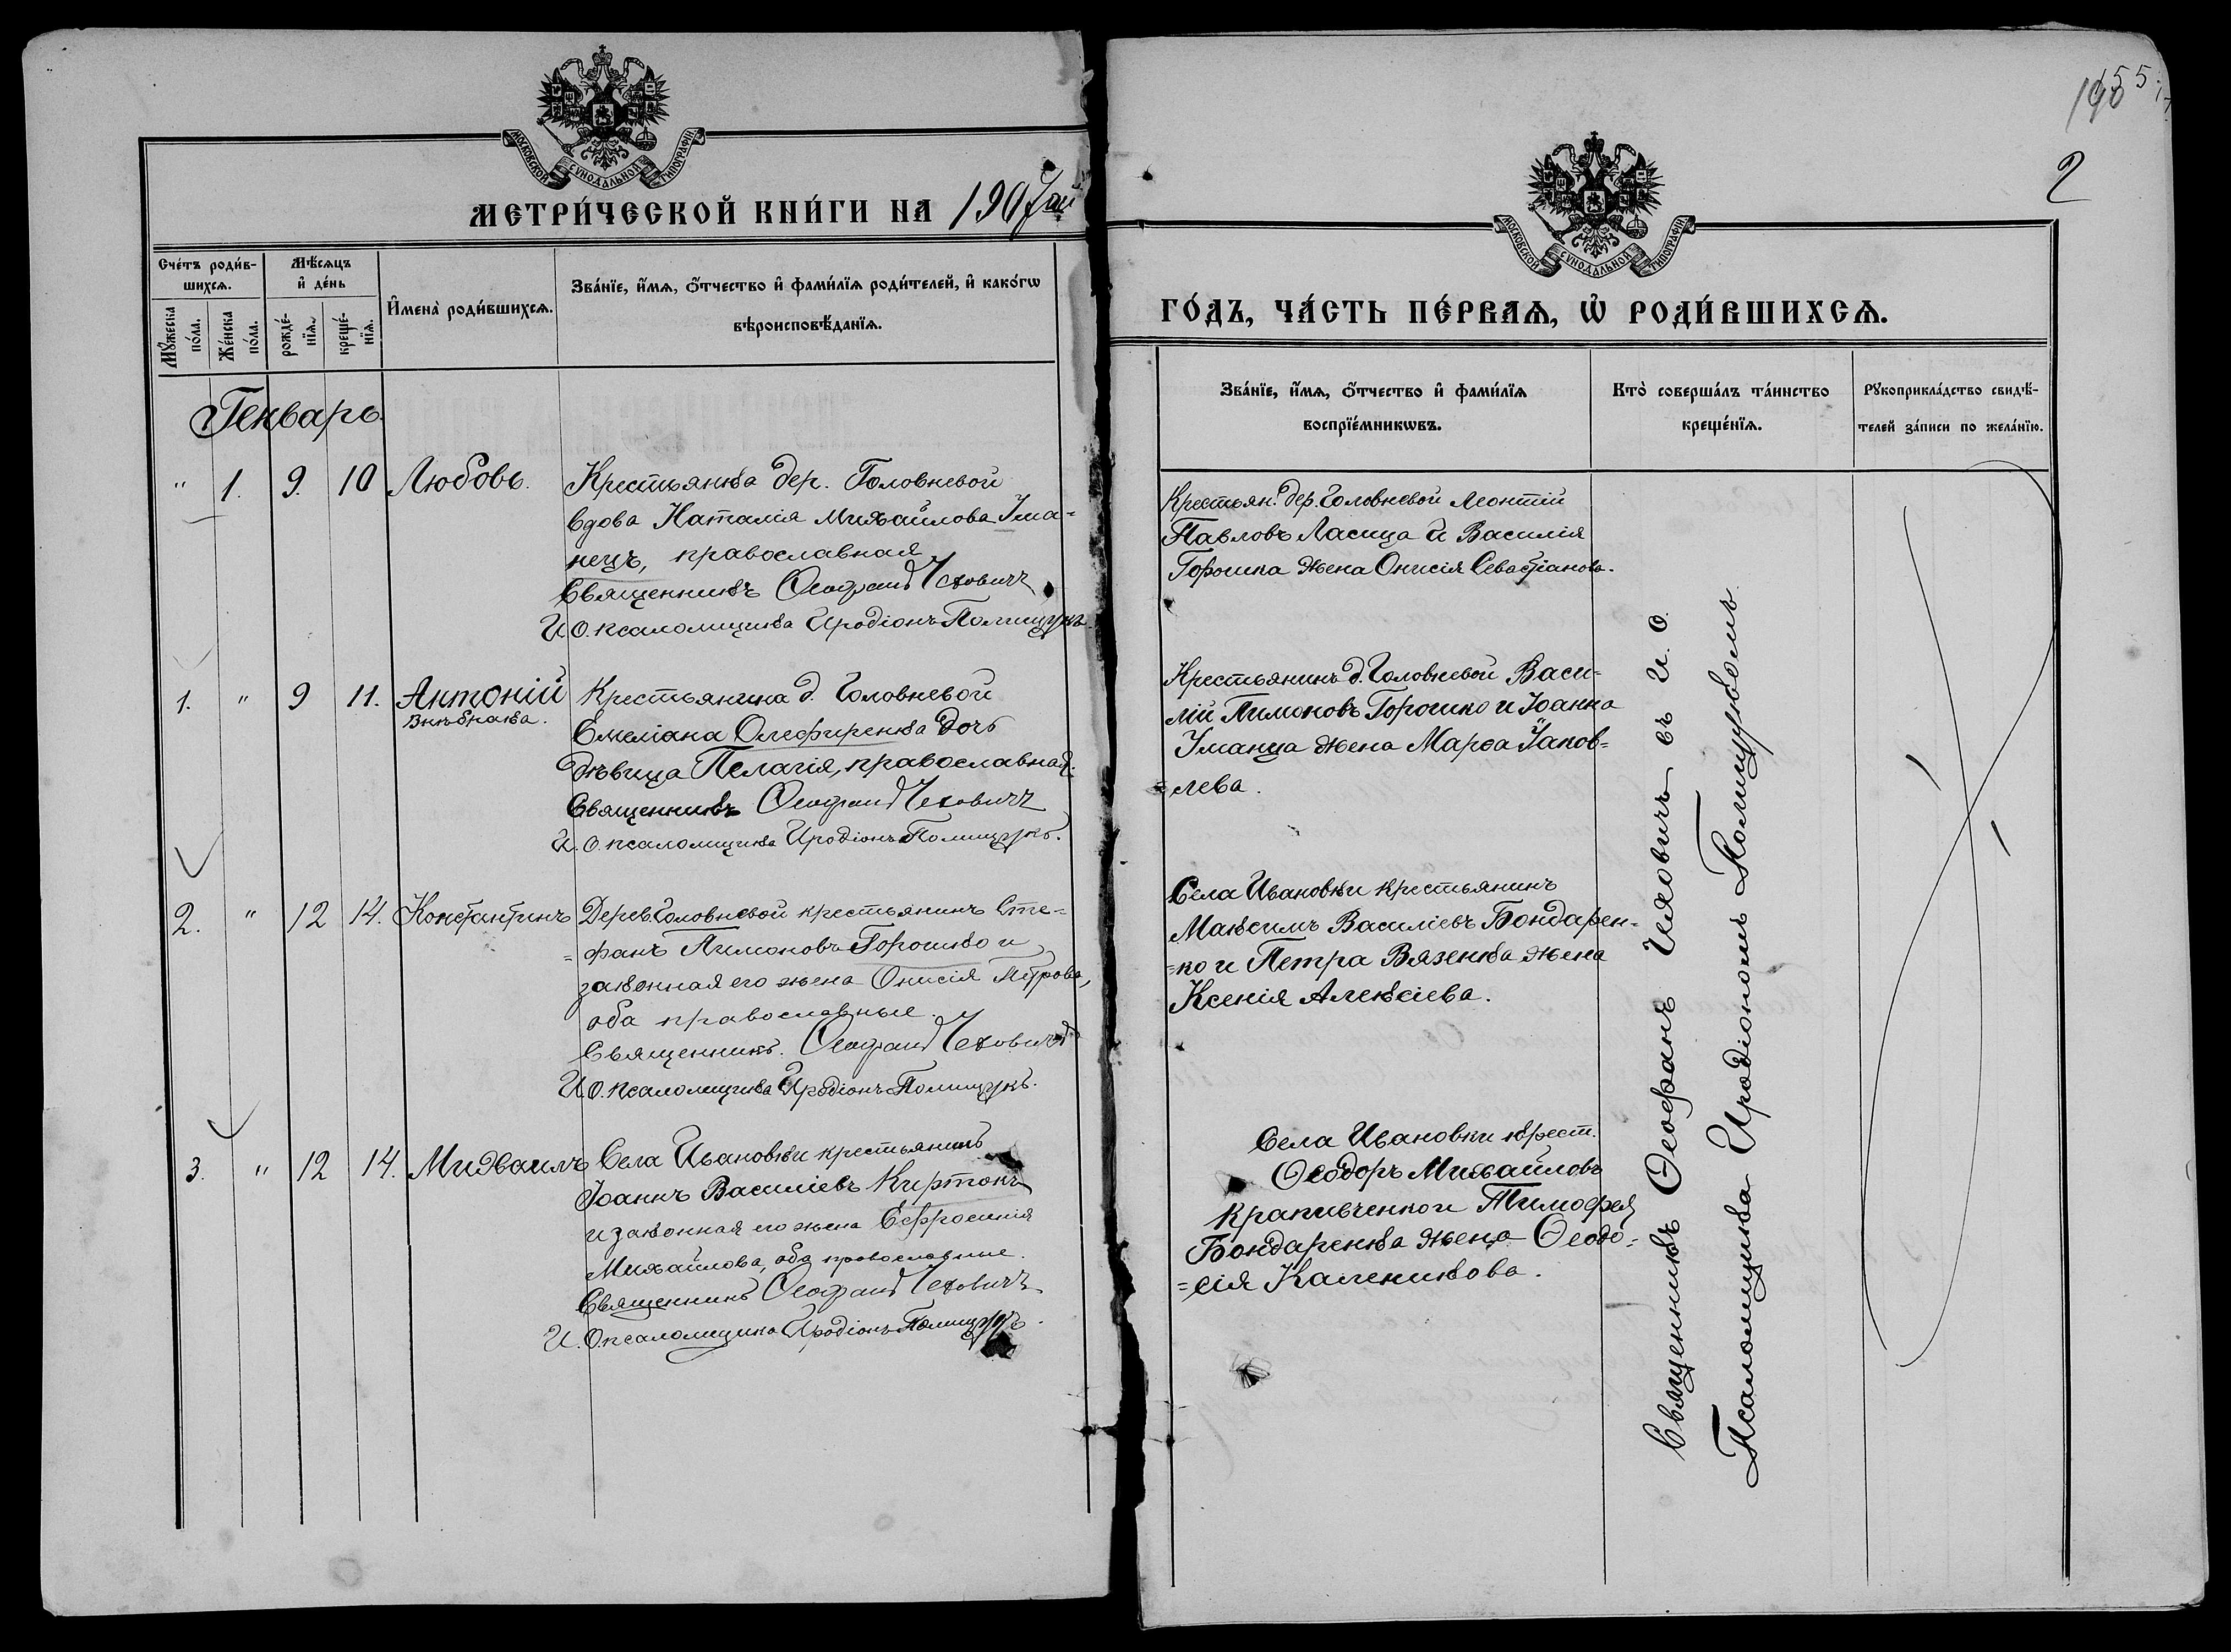 МОСКОВСКОЙ СѴНОДАЛЬНОЙ ТИПОГРАФІИ
МЕТРИ́ЧЕСКОЙ КНИ́ГИ НА 1907 ай
Сче́тъ роди́в-
шихсѧ.
Мꙋ́жеска
по́ла.
Же́нска
по́ла.
Мѣ́сѧцъ
и҆ де́нь
рожде́-
нїѧ.
креще́-
нїѧ.
И҆мена̀ роди́вшихсѧ.
Зва́нїе, и҆́мѧ, ѻ҆́тчество и҆ фами́лїѧ роди́телей, и҆ како́гѡ
вѣроисповѣ́данїѧ.
Генварь.
" 1. 9. 10 Любовь. Крестьянка дер. Головневой
вдова Наталія Михайлова Ума-
нецъ, православная
Священникъ Ѳеофанъ
И. О. псаломщика Иродіонъ Полищукъ.
1. " 9 11. Антоній Крестьянина д. Головневой
Внѣбрака. Емеліана Олефиренка дочь
дѣвица Пелагія, православная.
Священникъ Ѳеофанъ
И. О. псаломщика Иродіонъ Полищукъ.
2. " 12 14. Константинъ Дерев. Головневой крестьянинъ Сте-
=фанъ Пимоновъ Горошко и
законная его жена Онисія Петрова,
оба православные.
Священникъ. Ѳеофанъ
И. О. псаломщика Иродіонъ Полищукъ.
3. " 12 14. Михаилъ Села Ивановки крестьянинъ
Іоаннъ Василіевъ Киртокъ
и законная его жена Евфросинія
Михайлова, оба православные.
Священникъ Ѳеофанъ
И. О. псаломщика Иродіонъ Полищукъ.
2
МОСКОВСКОЙ СѴНОДАЛЬНОЙ ТИПОГРАФІИ
ГО́ДЪ, ЧА́СТЬ ПЕ́РВАѦ, Ѡ҆ РОДИ́ВШИХСѦ.
Зва́нїе, и҆́мѧ, ѻ҆́тчество и҆ фами́лїѧ
воспрїе́мникѡвъ.
Кто̀ соверша́лъ та́инство
креще́нїѧ.
Рꙋкоприкла́дство свидѣ́-
телей за́писи по жела́нїю.
Крестьян. дер. Головневой Леонтій
Павловъ Ласица и Василія
Горошка жена Онисія Севастіанова.
Крестьянинъ д. Головневой Васи-
лій Пимоновъ Горошко и Іоанна
Уманца жена Марѳа Іаков=
=лева.
Села Ивановки крестьянинъ
Максимъ Василіевъ Бондарен-
=ко и Петра Вязенка жена
Ксенія Алексіева.
Села Ивановки крест.
Ѳеодоръ Михайловъ
Крапивченко и Тимофея
Бондаренка жена Ѳеодо=
=сія Каленикова.
Священникъ Ѳеофанъ съ И. О.
Псаломщика Иродіономъ Полищукомъ.